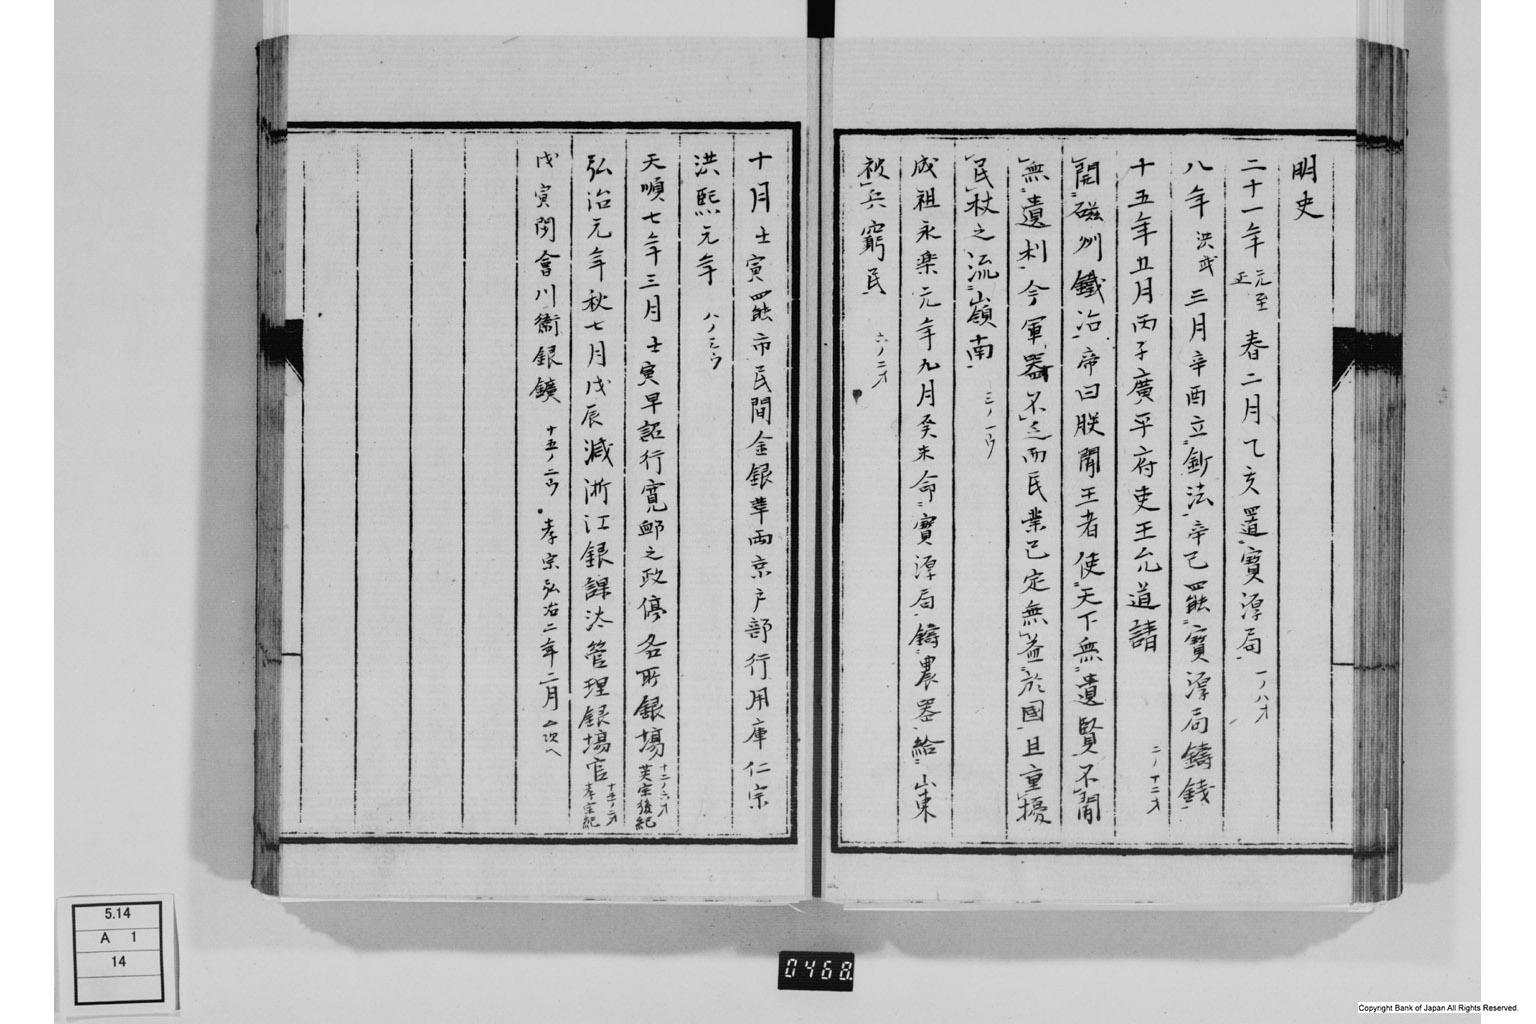 明史
二十一年 元至正 春二月乙亥置寶源局 一ノ八オ
八年 洪武 三月辛酉立鈔法辛已罷寶源局鑄錢
十五年五月丙子廣平府吏王允道請 二ノ十二オ
開磁州鐵冶帝曰朕聞王者使天下無遺賢不聞
無遺利今軍器不乏而民業已定無益於國且重擾
民杖之流嶺南 三ノ一ウ
成祖永楽元年九月癸未命寶源局鑄農器給山東
被兵窮民 六ノ二オ
十月壬寅罷市民間金銀革両京戸部行用庫仁宗
洪熙元年 八ノ三ウ
天順七年三月壬寅旱詔行寛卹之政停各所銀場 十二ノ六オ 英宗後紀
弘治元年秋七月戊辰減浙江銀課汰管理銀場官 十五ノ二オ 孝宗紀
戊寅閉會川衛銀鑛 十五ノ二ウ 孝宗弘治二年二月 ム次ヘ
5.14
A 1
14
0468
Copyright Bank of Japan All Rights Reserved.